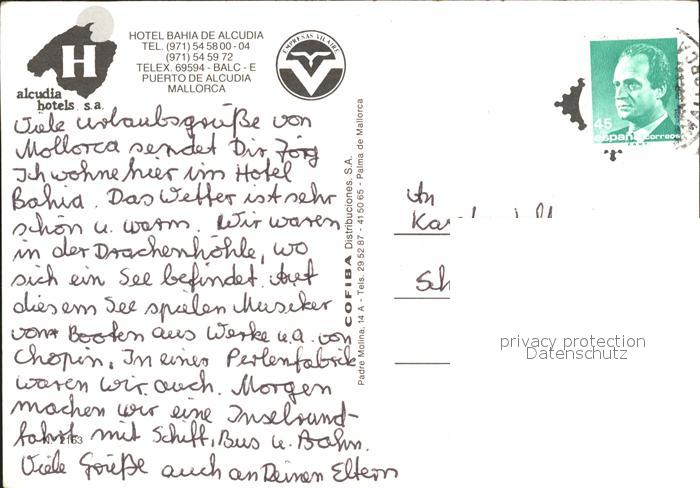 HOTEL BAHIA DE ALCUDIA
TEL. (971) 54 58 00 - 04
(971) 54 59 72
TELEX. 69594 - BALC - E
PUERTO DE ALCUDIA
MALLORCA
H
alcudia
hotels s.a.
EMPRESAS VILAIRE
Viele Urlaubsgrüße von
Mallorca sendet Dir Jörg
Ich wohne hier im Hotel
Bahia. Das Wetter ist sehr
schön u. warm. Wir waren
in der Drachenhöhle, wo
sich ein See befindet. Auf
diesem See spielen Musiker
von Booten aus Werke u.a. von
Chopin. In einer Perlenfabrik
waren wir auch. Morgen
machen wir eine Inselrund-
fahrt mit Schiff, Bus u. Bahn.
Viele Grüße auch an Deinen Eltern
2163
COFIBA Distribuciones, S.A.
Padre Molina, 14 A - Tels. 29 52 87 - 415 0 65 - Palma de Mallorca
45
españa correos
An
Ka
Sch
privacy protection
Datenschutz